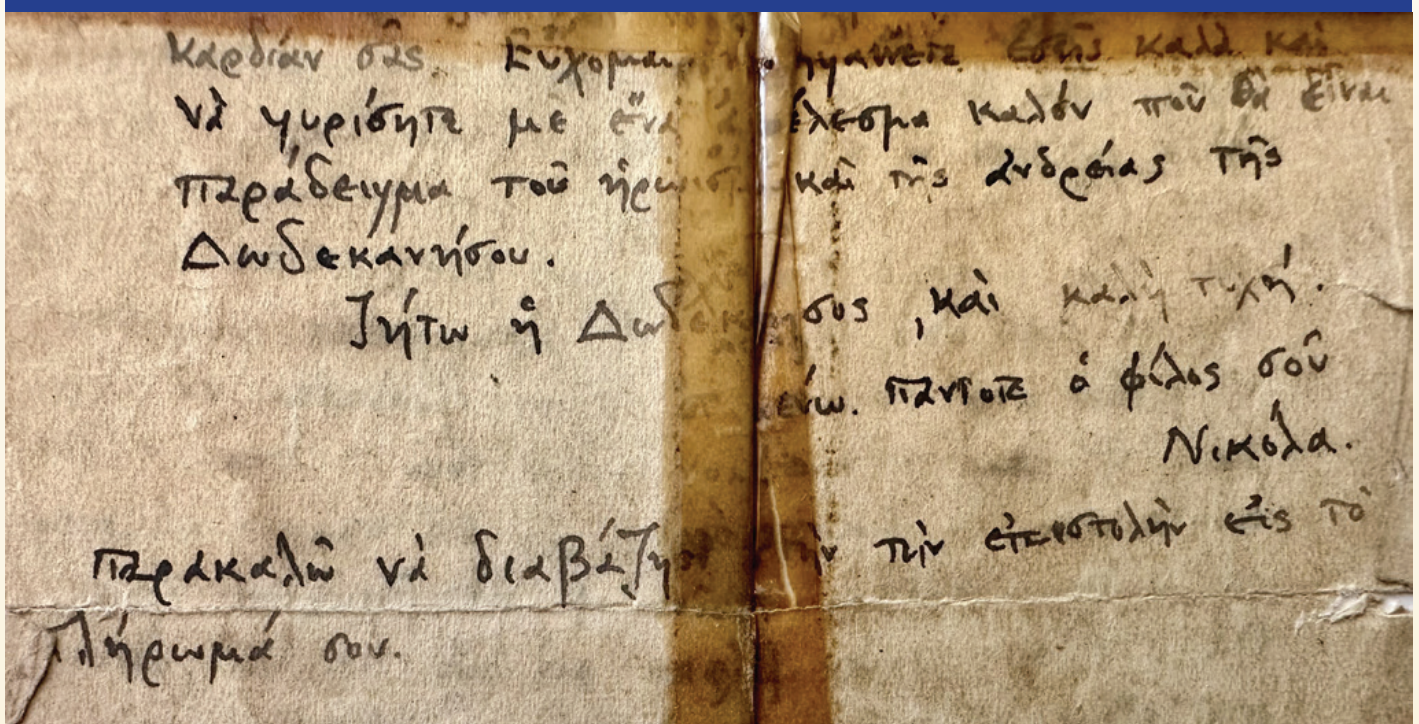 καρδίαν σας. Εὔχομαι πηγαίνετε ἐσεῖς καλὰ καὶ
νὰ γυρίσητε μὲ ἕνα ἀποτέλεσμα καλὸν ποῦ θὰ εἶναι
παράδειγμα τοῦ ἡρωισμοῦ καὶ τῆς ἀνδρείας τῆς
Δωδεκανήσου.
Ζήτω ἡ Δωδεκάνησος, καὶ καλὴ τυχή.
πάντοτε ὁ φίλος σοῦ
Νικόλα.
Παρακαλῶ νὰ διαβάζης τὴν ἐπιστολὴν εἰς τὸ
πλήρωμά σου.